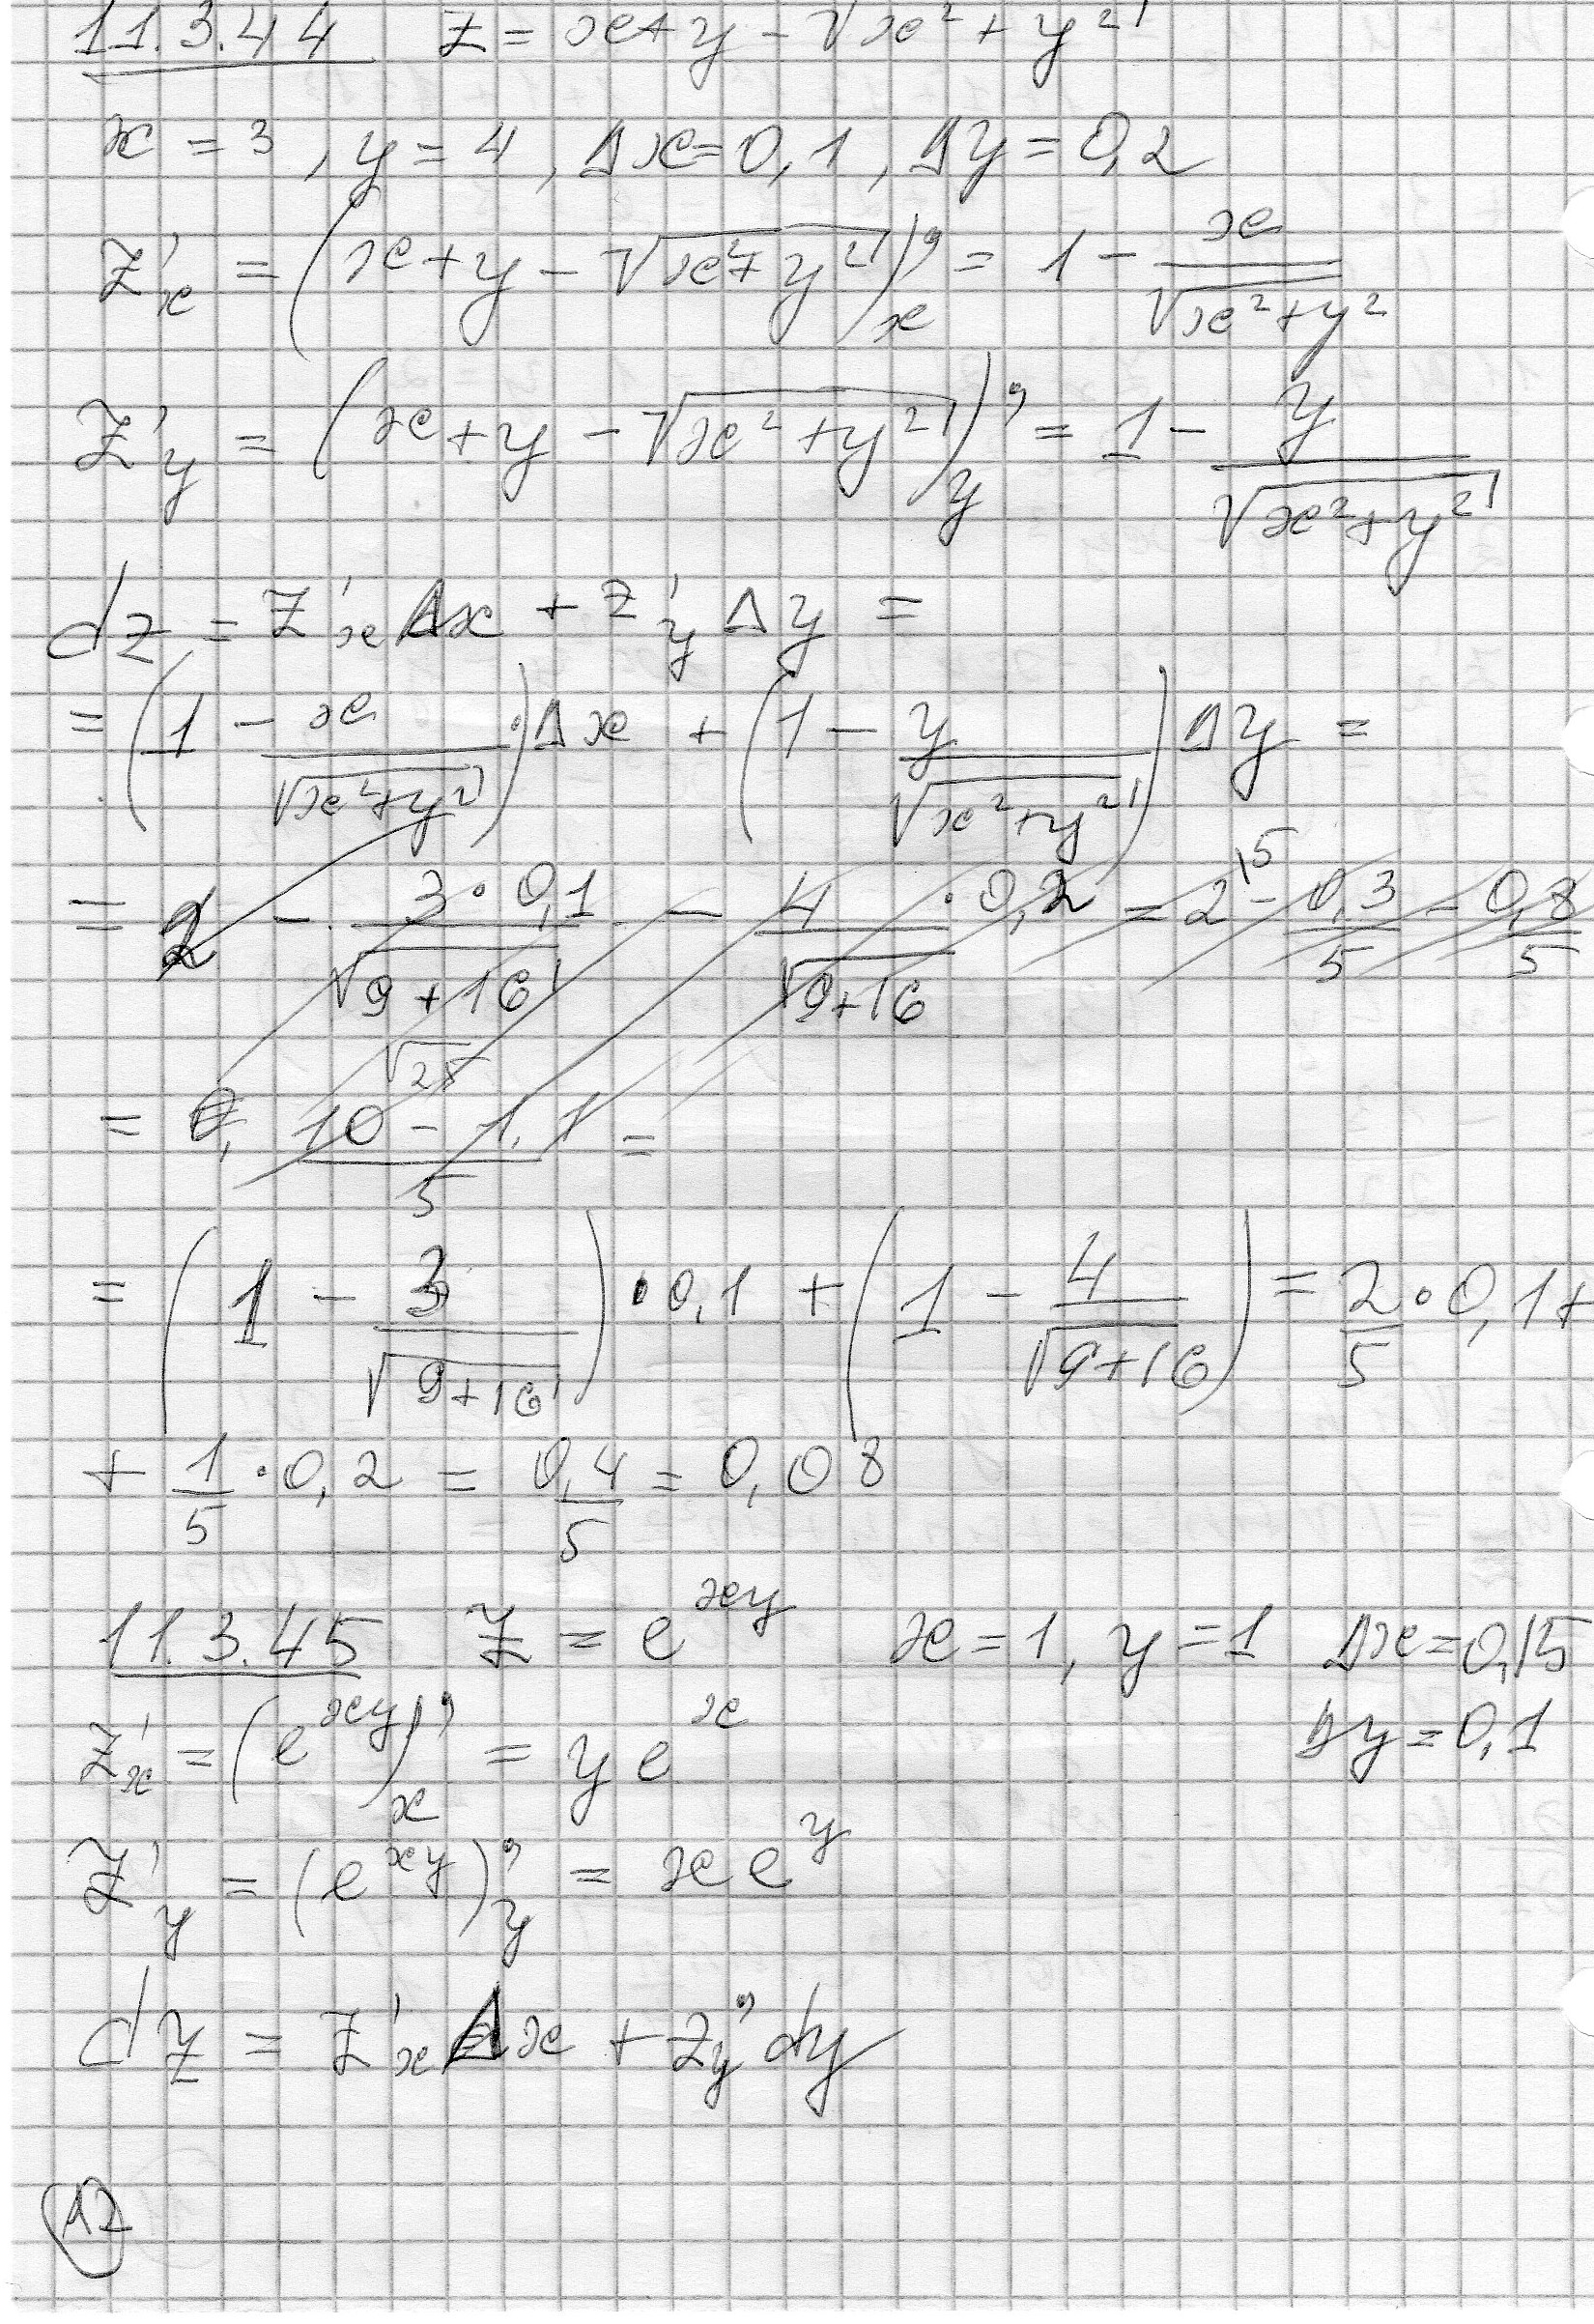 11.3.44 z = x+y - √x²+y²
x = 3, y = 4, Δx = 0,1, Δy = 0,2
z'x = (x+y - √x²+y²)'x = 1 - x/√x²+y²
z'y = (x+y - √x²+y²)'y = 1 - y/√x²+y²
dz = z'x Δx + z'y Δy =
= (1 - x/√x²+y²)Δx + (1 - y/√x²+y²)Δy =
= 2 - 3·0,1/√9+16 - 4·0,2/√9+16 = 2\5 - 0,3/5 - 0,8/5
√25
= 0, 10 - 1,1/5 =
= (1 - 3/√9+16)·0,1 + (1 - 4/√9+16) = 2/5·0,1+
+ 1/5·0,2 = 0,4/5 = 0,08
11.3.45 z = e^xy x = 1, y = 1 Δx = 0,15
z'x = (e^xy)'x = y e^x Δy = 0,1
z'y = (e^xy)'y = x e^y
dz = z'x Δx + z'y dy
12